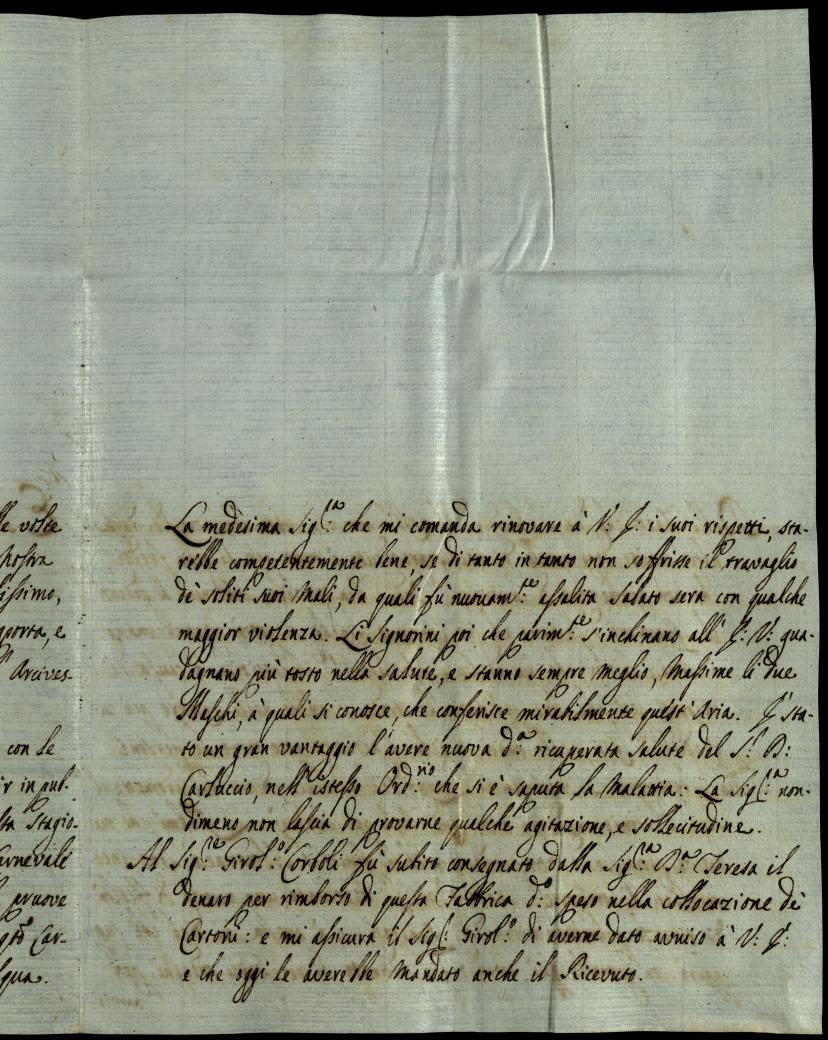 le volte
nostra
issimo,
pporta, e
Arcives-
con le
r in pub-
sta stagio-
arnevale
pruove
Car-
qua.
La medesima Sig.ra che mi comanda rinovare à V: E: i suoi rispetti, sta-
rebbe competentemente bene, se di tanto in tanto non soffrisse il travaglio
dè soliti suoi Mali, da quali fù nuovam.te assalita sabato sera con qualche
maggior violenza. Li Signorini poi che parim.te s'inchinano all' E: V: gua-
dagnano più tosto nella salute, e stanno sempre meglio, Massime li due
Maschi, à quali si conosce, che conferisce mirabilmente quest'Aria. E' sta-
to un gran vantaggio l'avere nuova d.a ricuperata salute del S.r D:
Carluccio, nell'istesso Ord.rio che si è saputa la Malattia: La Sig.ra non-
dimeno non lascia di provarne qualche agitazione, e sollecitudine.
Al Sig.re Girol.o Corboli fù subito consegnato dalla Sig.ra D.a Teresa il
denaro per rimborso di questa Fabbrica d.o speso nella collocazione dè
Cartoni: e mi assicura il Sig.r Girol.o di averne dato avviso à V: E:
e che oggi le averebbe Mandato anche il Ricevuto.